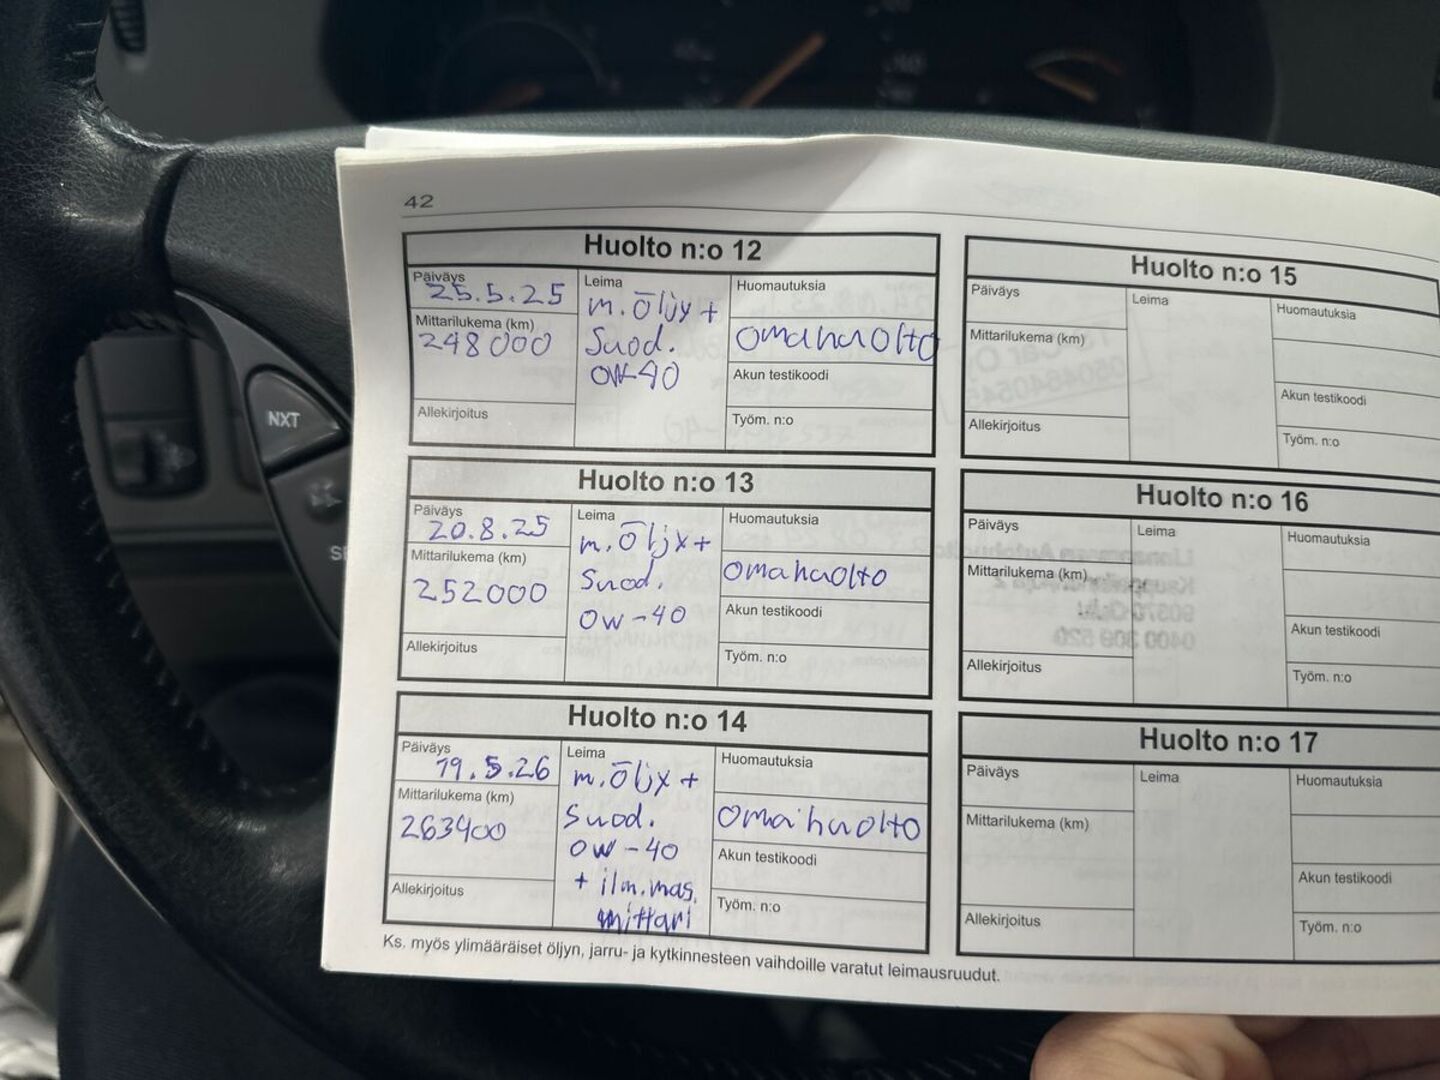 42
Huolto n:o 12
Päiväys
25.5.25
Mittarilukema (km)
248000
Allekirjoitus
Leima
m.Öljy +
Suod.
0W-40
Huomautuksia
omahuolto
Akun testikoodi
Työm. n:o
Huolto n:o 13
Päiväys
20.8.25
Mittarilukema (km)
252000
Allekirjoitus
Leima
m.Öljy +
Suod.
0W-40
Huomautuksia
omahuolto
Akun testikoodi
Työm. n:o
Huolto n:o 14
Päiväys
19.5.26
Mittarilukema (km)
263400
Allekirjoitus
Leima
m.Öljy +
Suod.
0W-40
+ ilm.mas.
mittari
Huomautuksia
omahuolto
Akun testikoodi
Työm. n:o
Ks. myös ylimääräiset öljyn, jarru- ja kytkinnesteen vaihdoille varatut leimausruudut.
Huolto n:o 15
Päiväys
Mittarilukema (km)
Allekirjoitus
Leima
Huomautuksia
Akun testikoodi
Työm. n:o
Huolto n:o 16
Päiväys
Mittarilukema (km)
Allekirjoitus
Leima
Huomautuksia
Akun testikoodi
Työm. n:o
Huolto n:o 17
Päiväys
Mittarilukema (km)
Allekirjoitus
Leima
Huomautuksia
Akun testikoodi
Työm. n:o
NXT